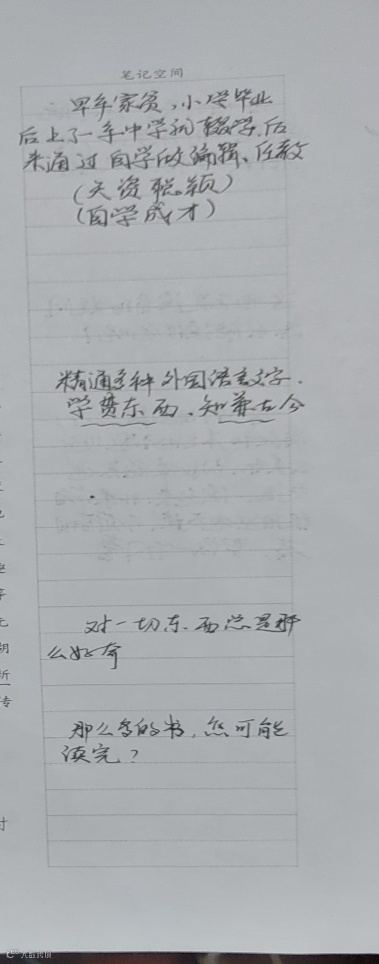 笔记空间
早年家贫，小学毕业
后上了一年中学就辍学.后
来通过自学做编辑、任教
（天资聪颖）
（自学成才）
精通多种外国语言文字.
学贯东西、知兼古今
对一切东西总是那
么好奇
那么多的书，怎可能
读完？